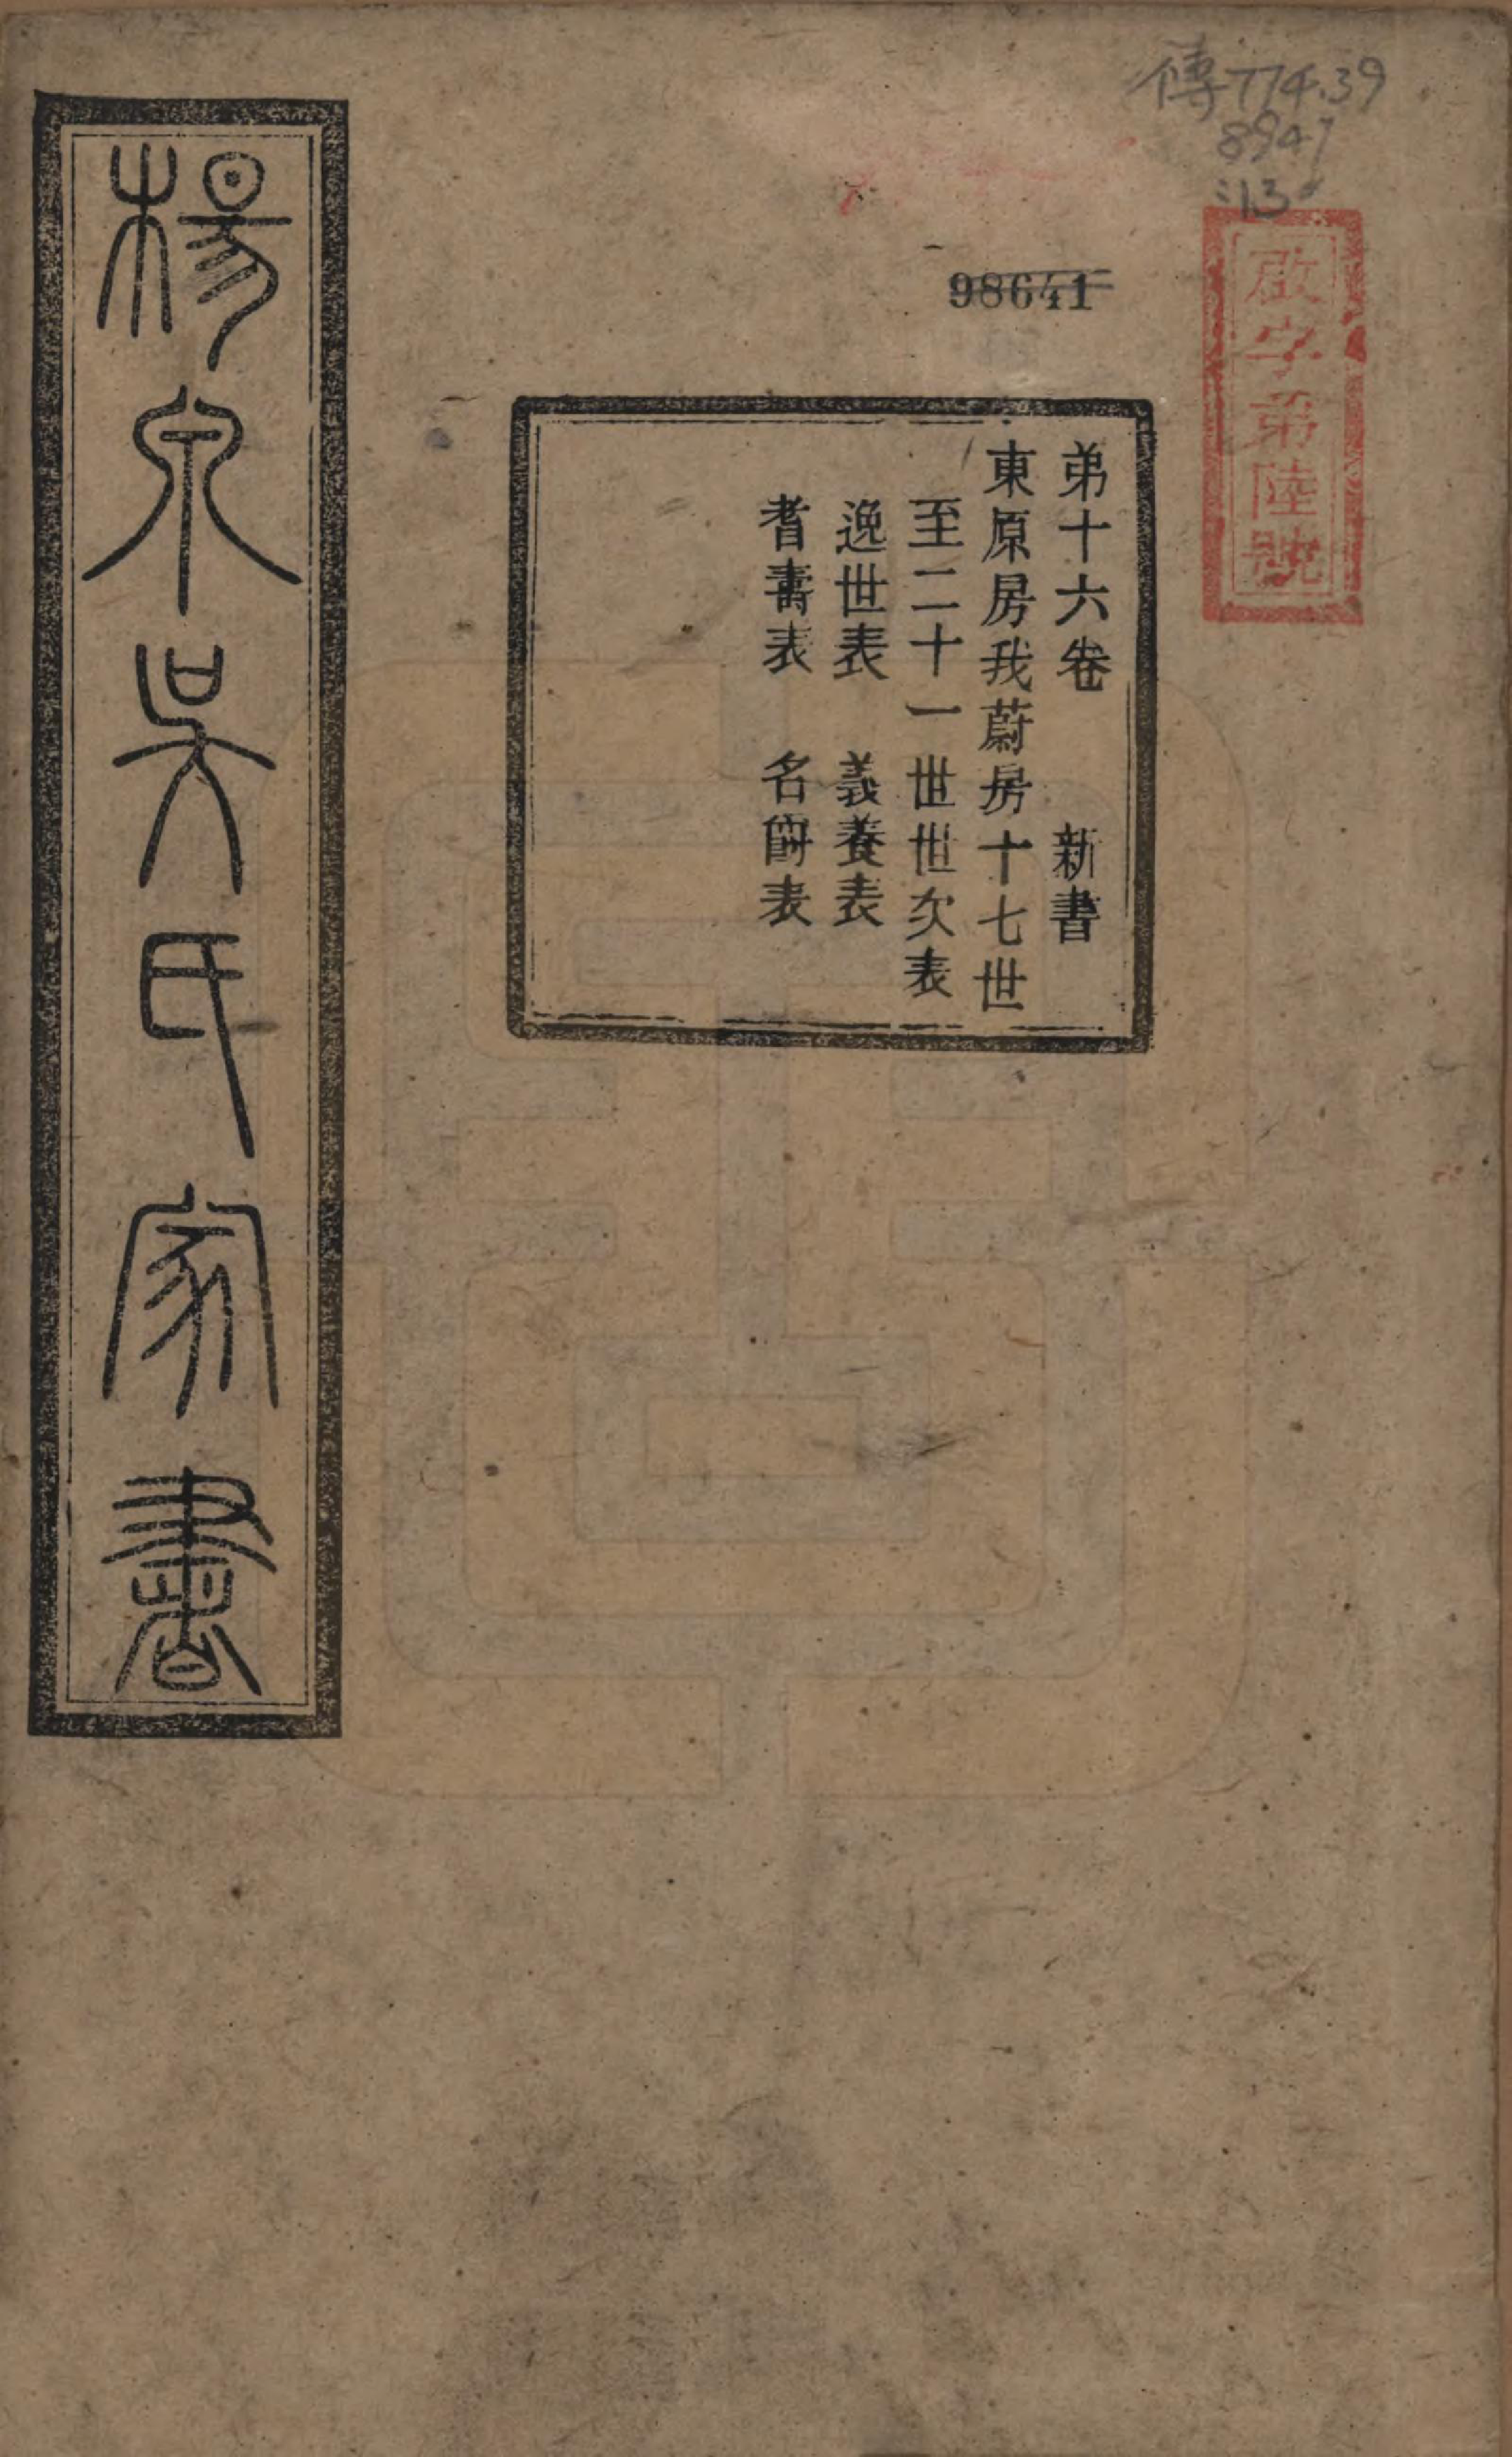 傳774.39
8947
:13
98641
啟字弟陸號
弟十六卷　新書
東原房我蔚房十七世
至二十一世世次表
逸世表　義養表
耆壽表　名爵表
楊泉吳氏家書